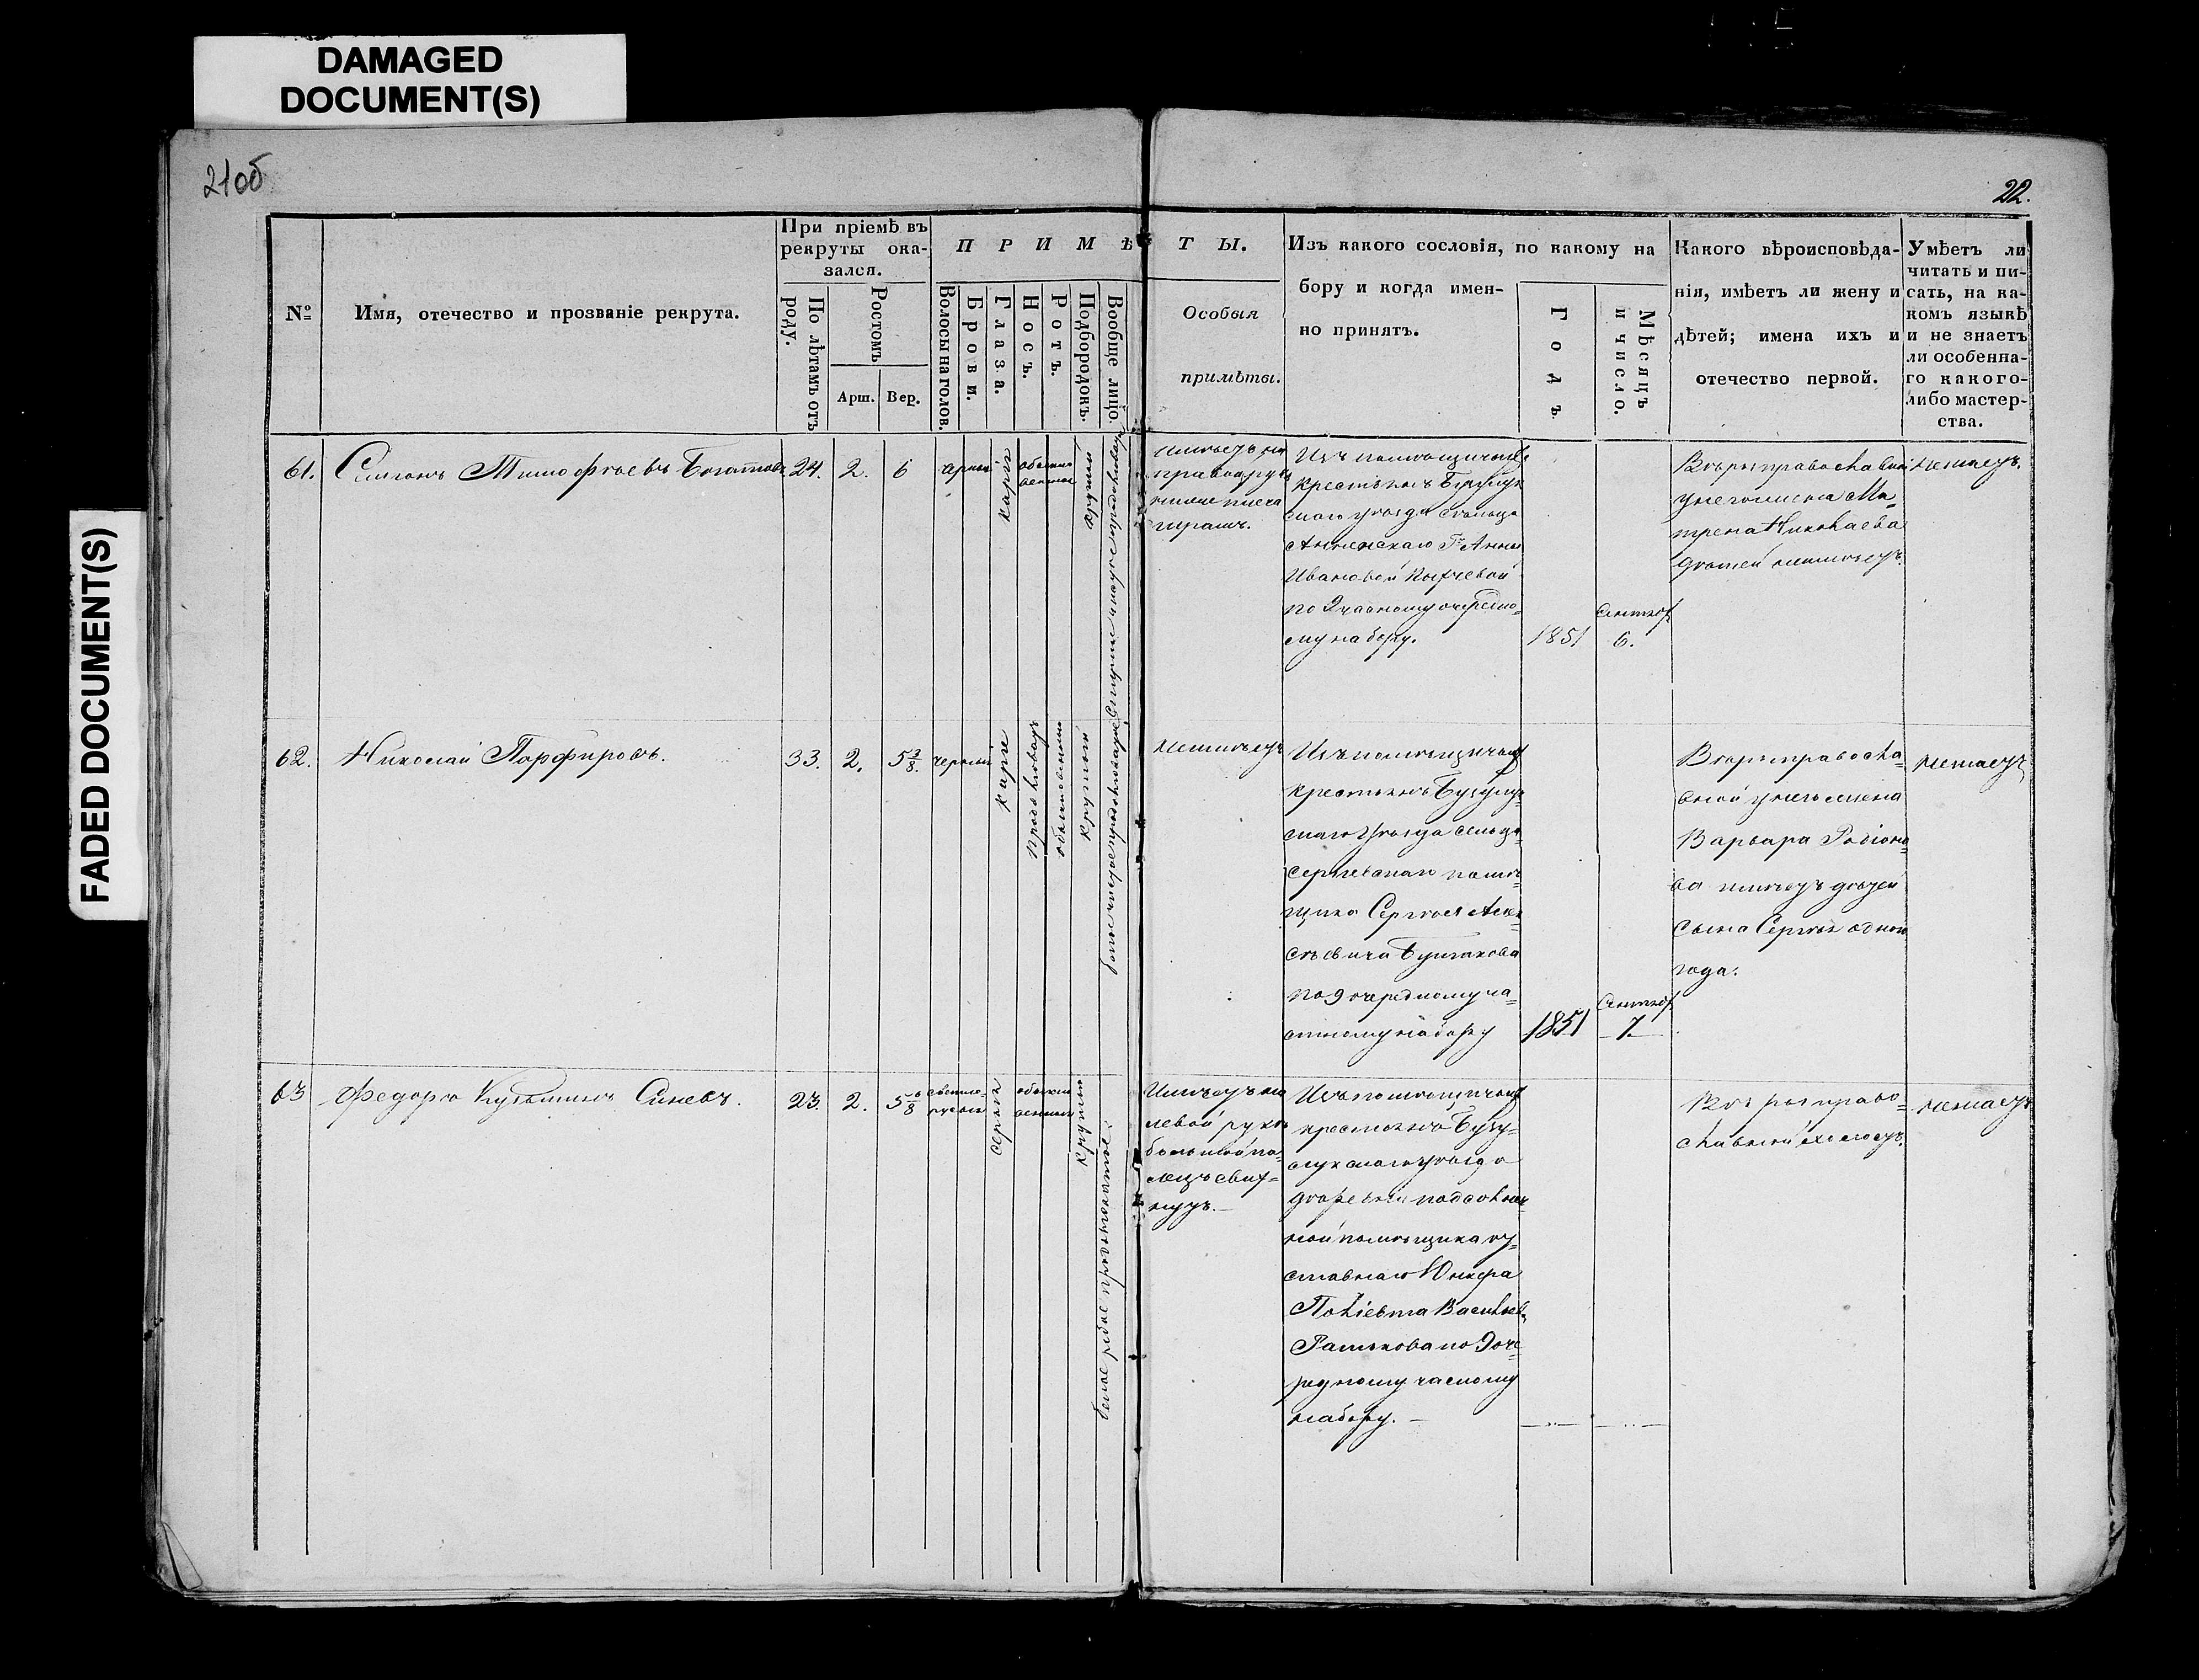 DAMAGED
DOCUMENT(S)
FADED DOCUMENT(S)
21об
22.
№
Имя, отечество и прозваніе рекрута.
При пріемѣ въ
рекруты ока-
зался.
По лѣтамъ отъ
роду.
Ростомъ
Арш.
Вер.
ПРИМѢТЫ.
Волосы на голов.
Брови.
Глаза.
Носъ.
Ротъ.
Подбородокъ.
Вообще лицо.
Особыя
примѣты.
Изъ какого сословія, по какому на
бору и когда имен-
но принятъ.
Годъ
Мѣсяцъ
и число.
Какого вѣроисповѣда-
нія, имѣетъ ли жену и
дѣтей; имена ихъ и
отечество первой.
Умѣетъ ли
читать и пи-
сать, на ка-
комъ языкѣ
и не знаетъ
ли особенна-
го какого-
либо мастер-
ства.
61.
Тимофѣевъ
24.
2.
6
каріе
круглый
имѣетъ на
правой
шрамъ.
Изъ помѣщичьихъ
крестьянъ Бузулук
скаго уѣзда сельца
Анненскаго Г. Анны
Ивановой
по 9 частному очередно=
му набору.
1851
Сентяб.
6.
Вѣры православной
у него жена Ма=
трена Николаева
дѣтей неимѣетъ.
незнаетъ.
62.
Николай Парфировъ.
33.
2.
5 3/8.
черныя
каріе
продолговатъ
обыкновенный
круглой
неимѣетъ
Изъ помѣщичьихъ
крестьянъ Бузулук=
скаго уѣзда сельца
Сергіевскаго помѣ=
щика Сергѣя Алек=
сѣевича Булгакова
по 9 очередному ча=
стному набору
1851
Сентяб.
7.
Вѣры правосла=
вной у него жена
Варвара Родіоно=
ва имѣетъ дѣтей
сына Сергѣя одного
года.
незнаетъ
63
Федоръ Кузьминъ Синевъ.
23.
2.
5 6/8
свѣтло-
русыя
серыя
обыкно
венныя
круглый
Имѣетъ на
левой рукѣ
большой па=
лецъ свих=
нутъ.
Изъ помѣщичьихъ
крестьянъ Бузу=
лукскаго уѣзда
деревни
ной помѣщика от=
ставнаго Юнкера
Поліевкта Васильев.
Ратькова по 9 оче=
редному часному
набору.
Вѣры право=
славной холостъ.
незнаетъ